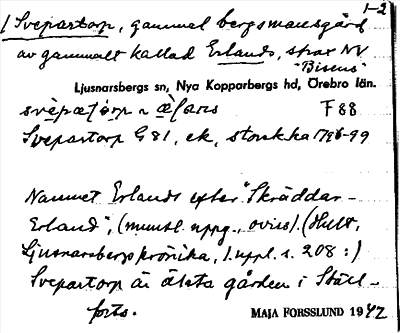 1-2
1 Svepartorp, gammal bergsmansgård
av gammalt kallad Erlands, strax NV
"Bisens"
Ljusnarsbergs sn, Nya Kopparbergs hd, Örebro län.
F 88
Svepartorp G 81, ek, storsk. ka 1796-99
Namnet Erlands efter "Skräddar-
Erland", (muntl. uppg., oviss). (Hult,
Ljusnarsbergs krönika, 1. uppl. s. 208 :)
Svepartorp är älsta gården i Ställ-
forts.
MAJA FORSSLUND 1942